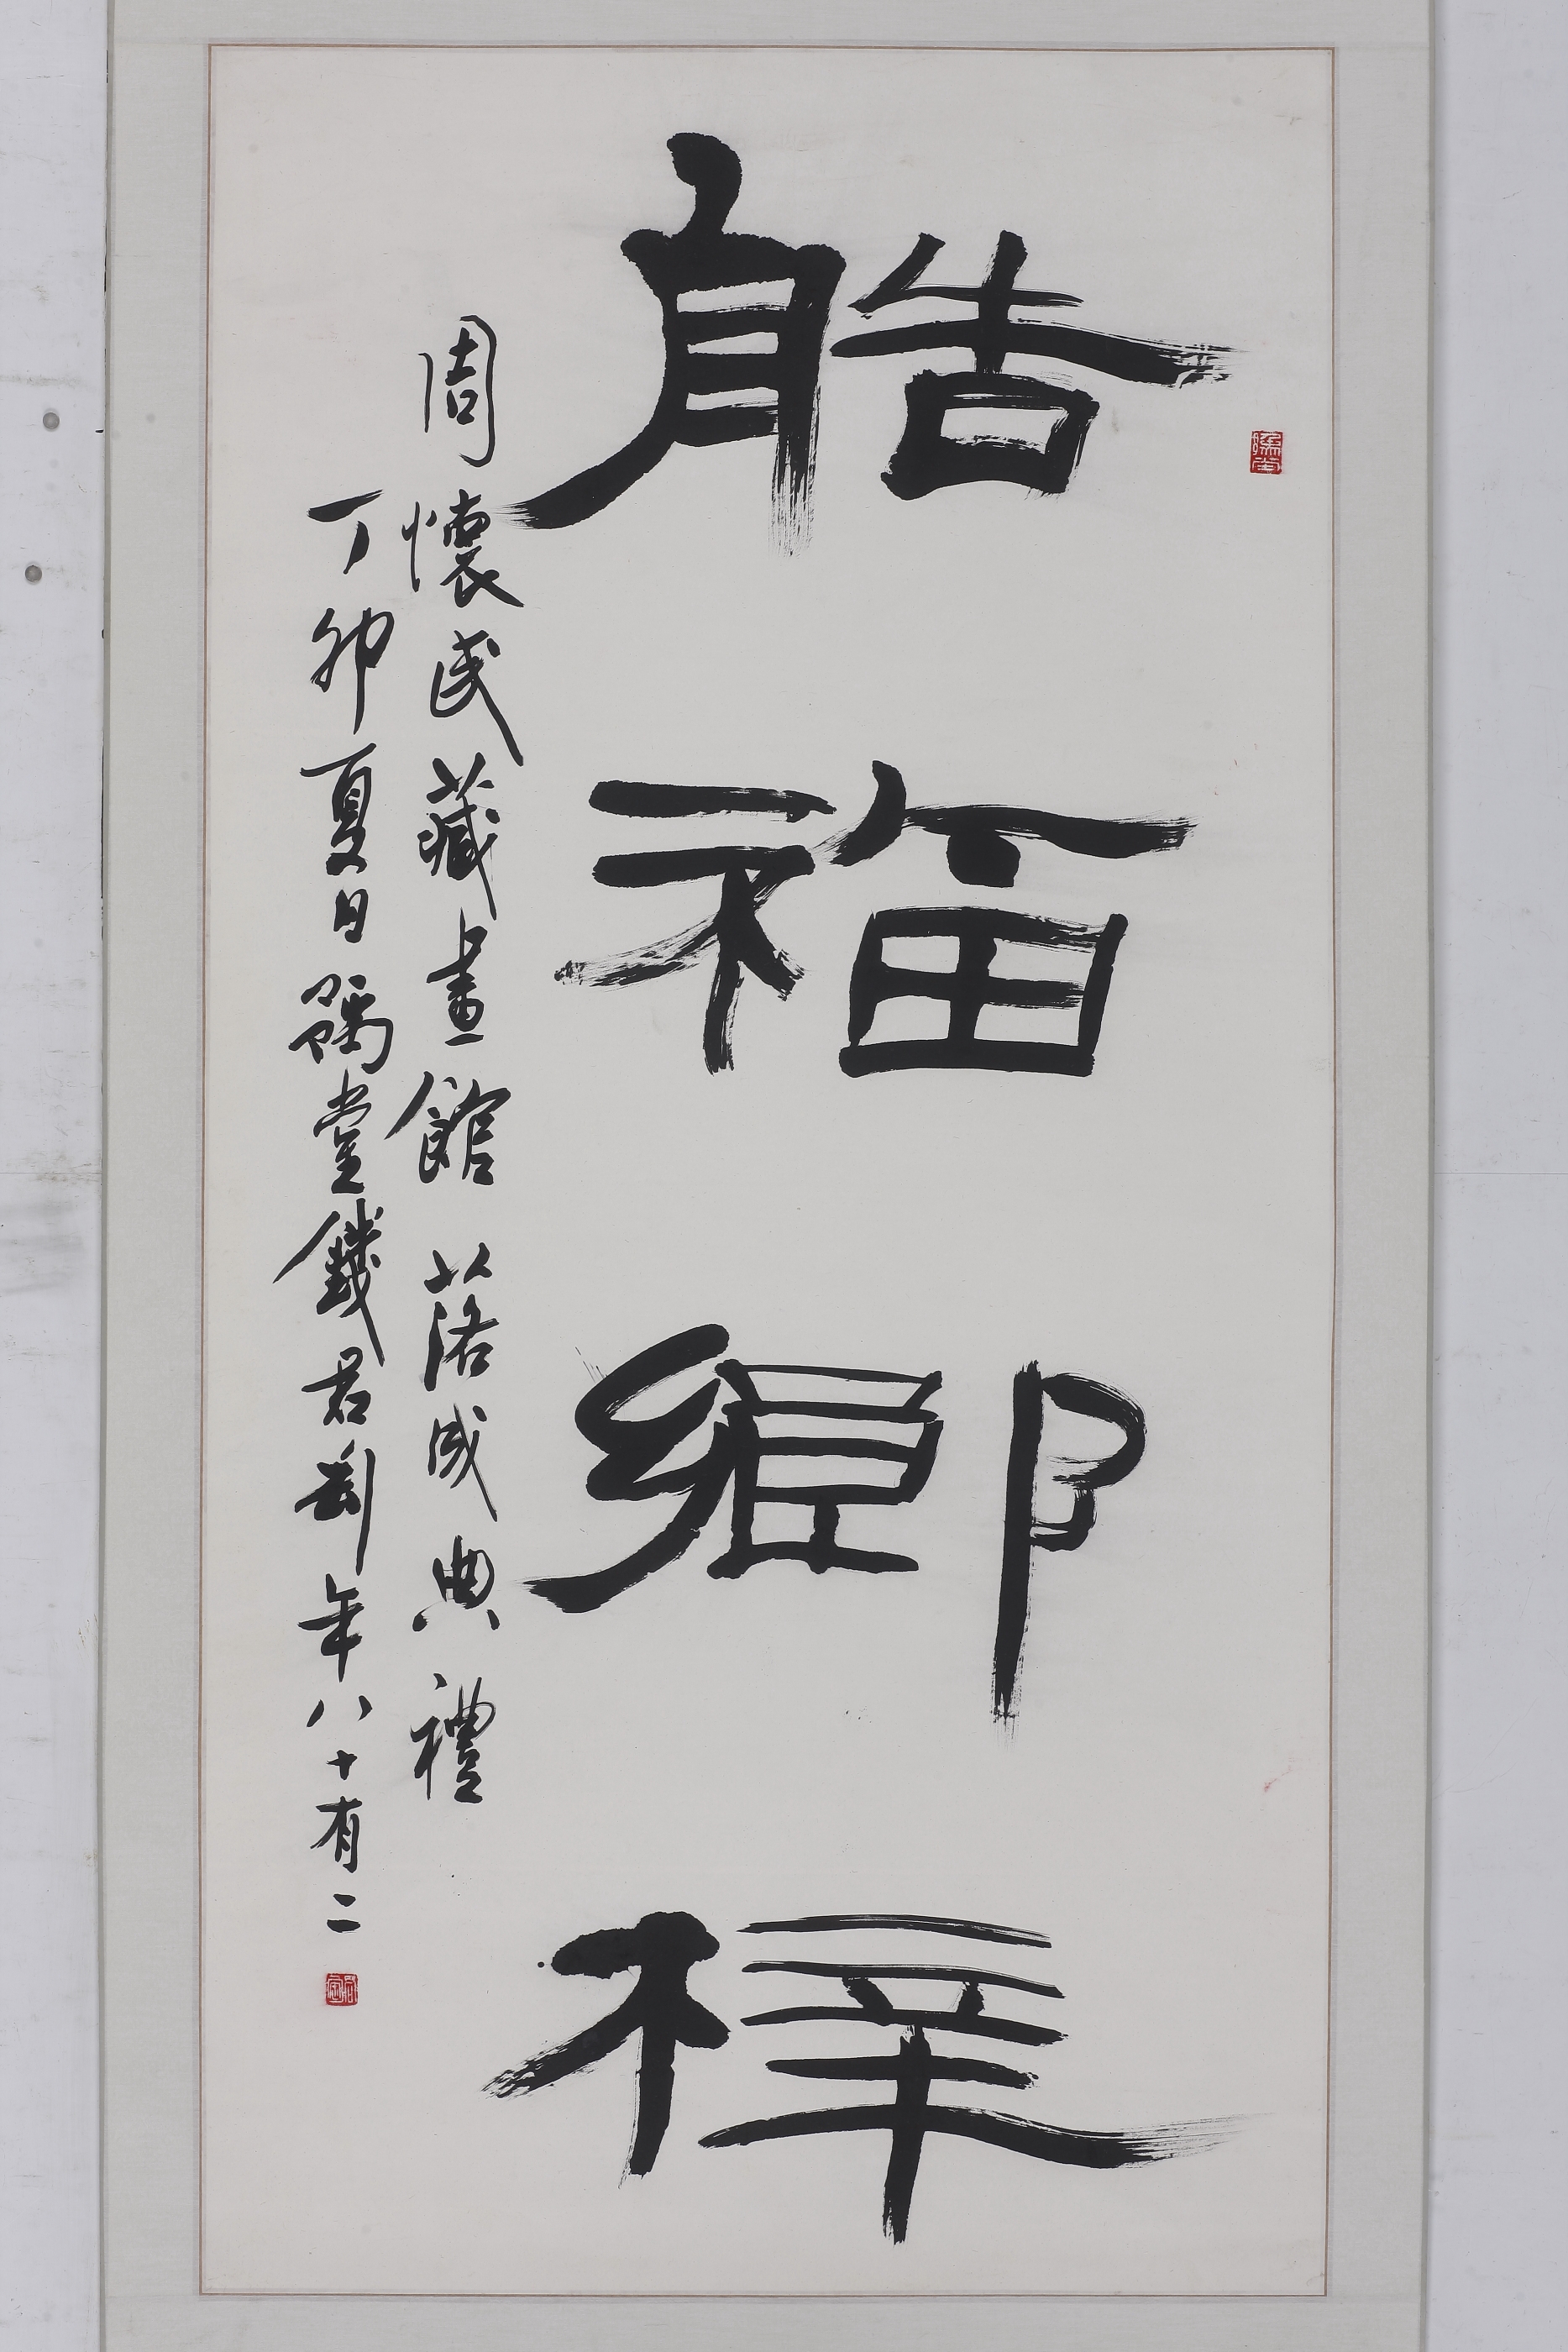 艁福鄉梓
周懷民藏畫館落成典禮
丁卯夏日豫堂錢君匋年八十有二